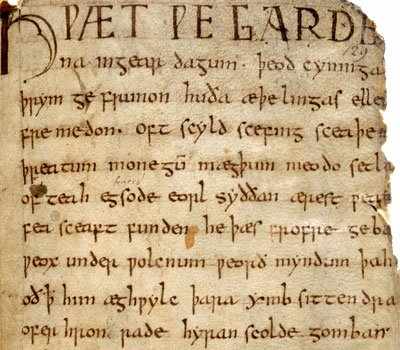 HǷÆT ǷE GARDE
na ingear dagum. þeod cyninga
þrym ge frunon huða æþelingas elle
fremedon. oft scyld scefing sceaþe
þreatum monegū mægþum meodo setla
of teah egsode eorl syððan ærest ƿear
fea sceaft funden he þæs frofre geba
ƿeox under ƿolcnum ƿeorð myndum þah
oð þ him æghƿylc þara ymb sittendra
ofer hron rade hyran scolde gomban